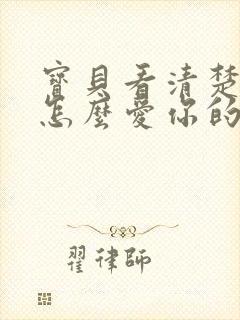 寶貝看清楚
怎麼愛你的
翟律師